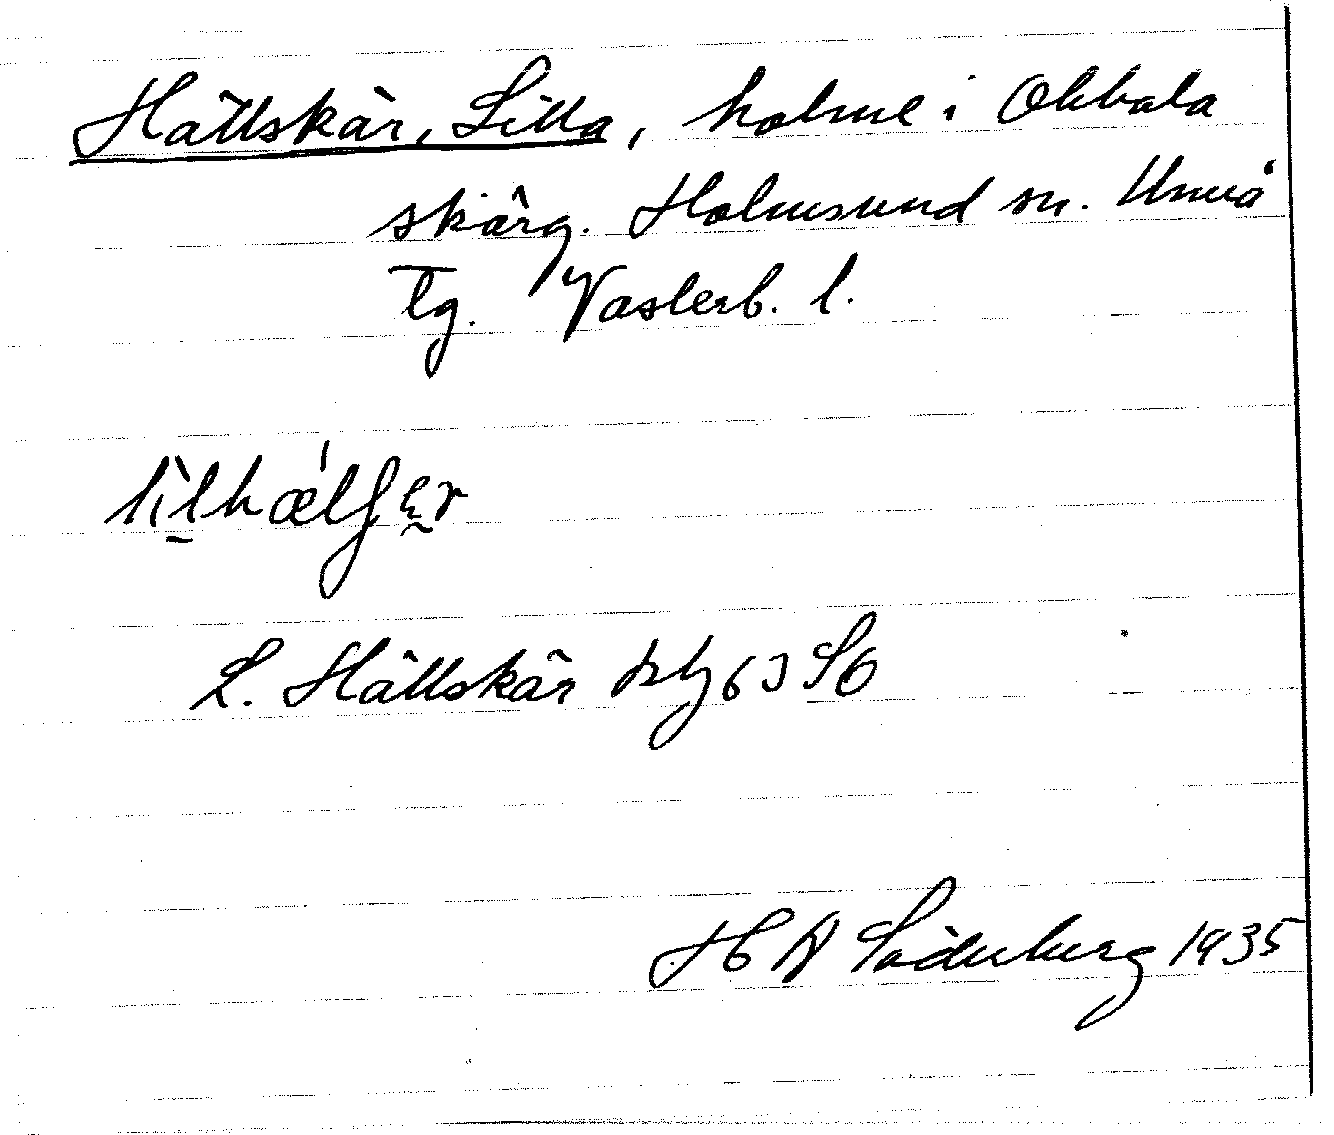 Hällskär, Lilla, holme i Obbola
skärg. Holmsund sn. Umeå
tg. Västerb. l.
L. Hällskär sjk 63 SO
H A Söderberg 1935